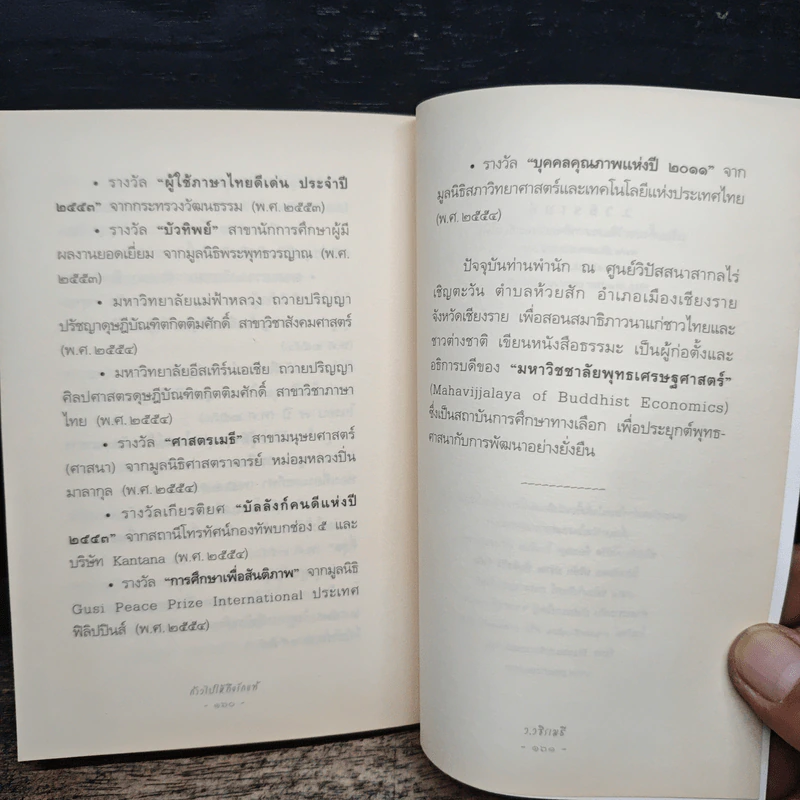 • รางวัล “ผู้ใช้ภาษาไทยดีเด่น ประจำปี
๒๕๕๓” จากกระทรวงวัฒนธรรม (พ.ศ.๒๕๕๓)
• รางวัล “บัวทิพย์” สาขานักการศึกษาผู้มี
ผลงานยอดเยี่ยม จากมูลนิธิพระพุทธวรญาณ (พ.ศ.
๒๕๕๓)
• มหาวิทยาลัยแม่ฟ้าหลวง ถวายปริญญา
ปรัชญาดุษฎีบัณฑิตกิตติมศักดิ์ สาขาวิชาสังคมศาสตร์
(พ.ศ.๒๕๕๔)
• มหาวิทยาลัยอีสเทิร์นเอเชีย ถวายปริญญา
ศิลปศาสตรดุษฎีบัณฑิตกิตติมศักดิ์ สาขาวิชาภาษา
ไทย (พ.ศ.๒๕๕๔)
• รางวัล “ศาสตรเมธี” สาขามนุษยศาสตร์
(ศาสนา) จากมูลนิธิศาสตราจารย์ หม่อมหลวงปิ่น
มาลากุล (พ.ศ.๒๕๕๔)
• รางวัลเกียรติยศ “บัลลังก์คนดีแห่งปี
๒๕๕๓” จากสถานีโทรทัศน์กองทัพบกช่อง ๕ และ
บริษัท Kantana (พ.ศ.๒๕๕๔)
• รางวัล “การศึกษาเพื่อสันติภาพ” จากมูลนิธิ
Gusi Peace Prize International ประเทศ
ฟิลิปปินส์ (พ.ศ.๒๕๕๔)
- ๑๖๐ -
• รางวัล “บุคคลคุณภาพแห่งปี ๒๐๑๑” จาก
มูลนิธิสภาวิทยาศาสตร์และเทคโนโลยีแห่งประเทศไทย
(พ.ศ.๒๕๕๔)
ปัจจุบันท่านพำนัก ณ ศูนย์วิปัสสนาสากลไร่
เชิญตะวัน ตำบลห้วยสัก อำเภอเมืองเชียงราย
จังหวัดเชียงราย เพื่อสอนสมาธิภาวนาแก่ชาวไทยและ
ชาวต่างชาติ เขียนหนังสือธรรมะ เป็นผู้ก่อตั้งและ
อธิการบดีของ “มหาวิชชาลัยพุทธเศรษฐศาสตร์”
(Mahavijjalaya of Buddhist Economics)
ซึ่งเป็นสถาบันการศึกษาทางเลือก เพื่อประยุกต์พุทธ-
ศาสนากับการพัฒนาอย่างยั่งยืน
ว.วชิรเมธี
- ๑๖๑ -